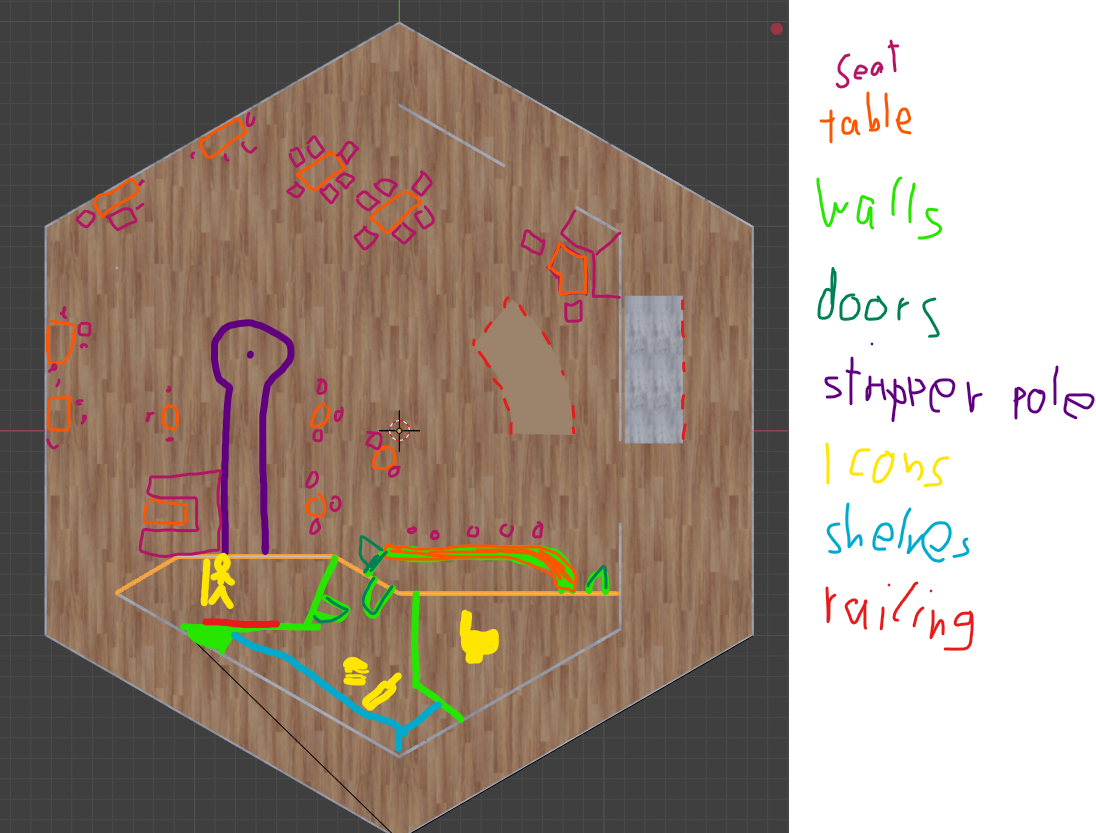 seat
table
walls
doors
stripper pole
Icons
shelves
railing